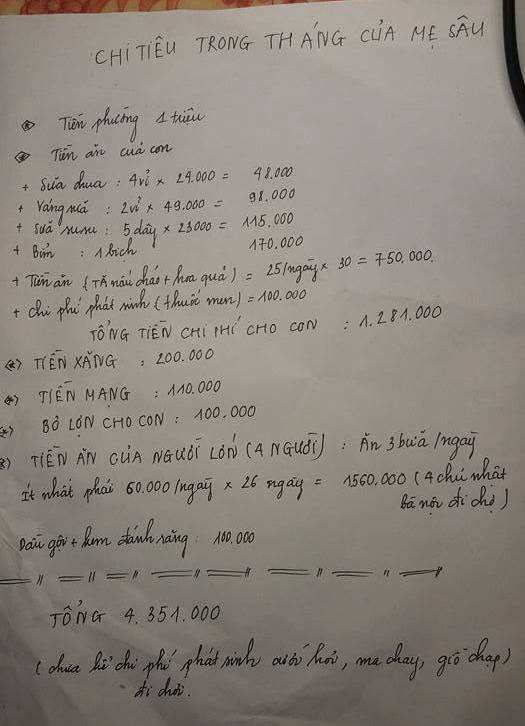 CHI TIÊU TRONG THÁNG CỦA MẸ SÂU
⊛ Tiền phường 1 triệu
⊛ Tiền ăn của con
+ Sữa chua : 4 vỉ × 24.000 = 48.000
+ Váng sữa : 2 vỉ × 49.000 = 98.000
+ Sữa susu : 5 dây × 23000 = 115.000
+ Bỉm : 1 bịch 170.000
+ Tiền ăn (TĂ nấu cháo + hoa quả) = 25/ngày × 30 = 750.000.
+ Chi phí phát sinh (thuốc men) = 100.000
TỔNG TIỀN CHI PHÍ CHO CON : 1.281.000
(*) TIỀN XĂNG : 200.000
(*) TIỀN MẠNG : 110.000
(*) BỎ LỢN CHO CON : 100.000
(*) TIỀN ĂN CỦA NGƯỜI LỚN (4 NGƯỜI) : Ăn 3 bữa / ngày
Ít nhất phải 60.000/ngày × 26 ngày = 1560.000 (4 chủ nhật
bà nội đi chợ)
Dầu gội + kem đánh răng : 100.000
TỔNG 4.351.000
(chưa kể chi phí phát sinh cưới hỏi, ma chay, giỗ chạp)
đi chơi.